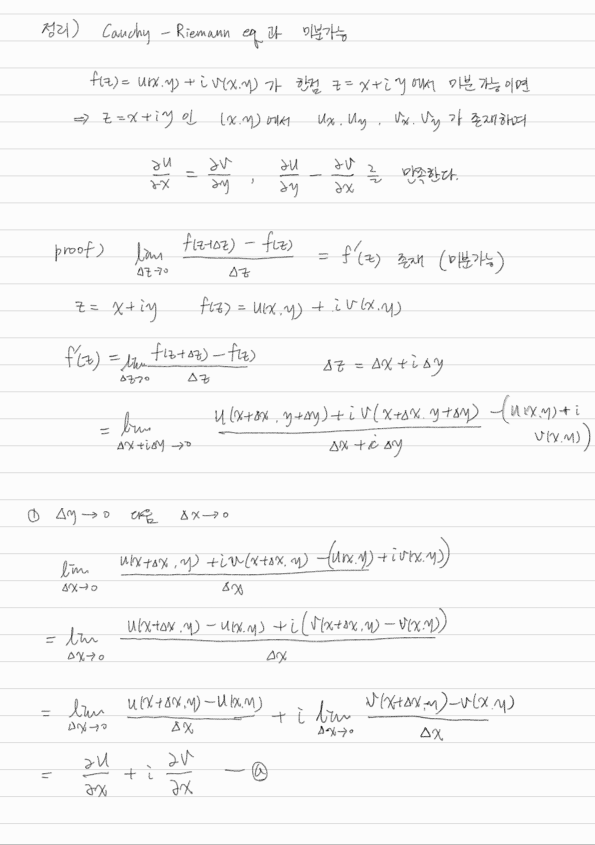 정리) Cauchy - Riemann eq 과 미분가능
f(z) = u(x.y) + i v(x.y) 가 한점 z = x + i y 에서 미분가능이면
⇒ z = x + i y 인 (x.y) 에서 ux. uy. vx. vy 가 존재하며
∂u/∂x = ∂v/∂y , ∂u/∂y - ∂v/∂x 를 만족한다.
proof) lim_{Δz→0} (f(z+Δz) - f(z))/Δz = f'(z) 존재 (미분가능)
z = x + iy f(z) = u(x.y) + i v(x.y)
f'(z) = lim_{Δz→0} (f(z+Δz) - f(z))/Δz Δz = Δx + i Δy
= lim_{Δx+iΔy→0} (u(x+Δx, y+Δy) + i v(x+Δx. y+Δy) - (u(x.y) + i v(x.y)))/(Δx + i Δy)
① Δy → 0 다음 Δx → 0
lim_{Δx→0} (u(x+Δx, y) + i v(x+Δx, y) - (u(x.y) + i v(x.y)))/Δx
= lim_{Δx→0} (u(x+Δx, y) - u(x.y) + i (v(x+Δx, y) - v(x.y)))/Δx
= lim_{Δx→0} (u(x+Δx, y) - u(x.y))/Δx + i lim_{Δx→0} (v(x+Δx, y) - v(x.y))/Δx
= ∂u/∂x + i ∂v/∂x — ⓐ